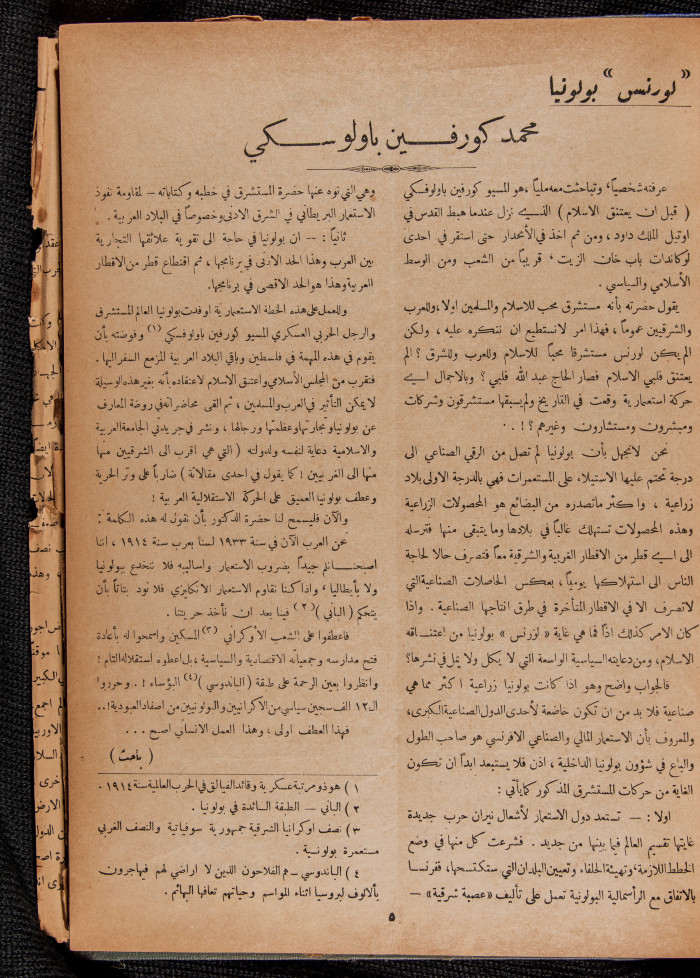 «لورنس» بولونيا
محمد كورفين باولوسكي
عرفته شخصياً، وتباحثت معه ملياً، هو المسيو كورفين باولوفسكي
( قبل ان يعتنق الاسلام ) الذي نزل عندما هبط القدس في
اوتيل الملك داود، ومن ثم اخذ في الانحدار حتى استقر في احدى
لوكاندات باب خان الزيت، قريباً من الشعب ومن الوسط
الأسلامي والسياسي .
يقول حضرته بأنه مستشرق محب للاسلام والمسلمين اولا، وللعرب
والشرقيين عموماً، فهذا امر لانستطيع ان ننكره عليه، ولكن
الم يكن لورنس مستشرقا محباً للاسلام وللعرب وللشرق ؟ الم
يعتنق فلبي الاسلام فصار الحاج عبد الله فلبي ؟ وبالاجمال اي
حركة استعمارية وقعت في التاريخ ولم يسبقها مستشرقون وشركات
ومبشرون ومستشارون وغيرهم ؟ ! . .
نحن لانجهل بأن بولونيا لم تصل من الرقي الصناعي الى
درجة تحتم عليها الاستيلاء على المستعمرات فهي بالدرجة الاولى بلاد
زراعية ، واكثر ماتصدره من البضائع هو المحصولات الزراعية
وهذه المحصولات تستهلك غالباً في بلادها وما يتبقى منها فترسله
الى اي قطر من الاقطار الغربية والشرقية معاً فتصرف حالا لحاجة
الناس الى استهلاكها يومياً، بعكس الحاصلات الصناعية التي
لاتصرف الا في الاقطار المتأخرة في طرق انتاجها الصناعية . واذا
كان الامر كذلك اذاً فما هي غاية «لورنس» بولونيا من اعتناقه
الاسلام، ومن دعايته السياسية الواسعة التي لا يكل ولا يمل في نشرها؟
فالجواب واضح وهو اذا كانت بولونيا زراعية اكثر مما هي
صناعية فلا بد من ان تكون خاضعة لأحدى الدول الصناعية الكبرى،
والمعروف بأن الاستعمار المالي والصناعي الافرنسي هو صاحب الطول
والباع في شؤون بولونيا الداخلية ، اذن فلا يستبعد ابداً ان تكون
الغاية من حركات المستشرق المذكور كما يأتي :
اولا : — تستعد دول الاستعمار لأشعال نيران حرب جديدة
غايتها تقسيم العالم فيما بينها من جديد . فشرعت كل منها في وضع
الخطط اللازمة، وتهيئة الحلفاء وتعيين البلدان التي ستكتسحها، ففرنسا
بالاتفاق مع الرأسمالية البولونية تعمل على تأليف «عصبة شرقية» —
وهي التي نوه عنها حضرة المستشرق في خطبه وكتاباته — لمقاومة نفوذ
الاستعمار البريطاني في الشرق الادنى وخصوصاً في البلاد العربية .
ثانياً : — ان بولونيا في حاجة الى تقوية علائقها التجارية
بين العرب وهذا الحد الادنى في برنامجها ، ثم اقتطاع قطر من الاقطار
العربية وهذا هو الحد الاقصى في برنامجها.
وللعمل على هذه الخطة الاستعمارية اوفدت بولونيا العالم المستشرق
والرجل الحربي العسكري المسيو كورفين باولوفسكي (١) وفوضته بأن
يقوم في هذه المهمة في فلسطين وباقي البلاد العربية المزمع السفر اليها.
فتقرب من المجلس الأسلامي واعتنق الاسلام لاعتقاده بأنه بغير هذه الوسيلة
لا يمكن التأثير في العرب والمسلمين ، ثم القى محاضراته في روضة المعارف
عن بولونيا وتجارتها وعظمتها ورجالها ، ونشر في جريدتي الجامعة العربية
والاسلامية دعاية لنفسه ولدولته ( التي هي اقرب الى الشرقيين منها
منها الى الغربيين ! كما يقول في احدى مقالاته ) ضارباً على وتر الحرية
وعطف بولونيا العميق على الحركة الاستقلالية العربية !
والآن فليسمح لنا حضرة الدكتور بأن نقول له هذه الكلمة :
نحن العرب الآن في سنة ١٩٣٣ لسنا بعرب سنة ١٩١٤ ، اننا
اصبحنا نلم جيداً بضروب الاستعمار واساليبه فلا ننخدع ببولونيا
ولا بأيطاليا، واذا كنا نقاوم الاستعمار الانكليزي فلا نود بتاتاً بأن
يتحكم ( الباني ) (٢) فينا بعد ان نأخذ حريتنا .
فاعطفوا على الشعب الأوكراني (٣) المسكين واسمحوا له بأعادة
فتح مدارسه وجمعياته الاقتصادية والسياسية ، بل اعطوه استقلاله التام !
وانظروا بعين الرحمة على طبقة ( الباندوسي ) (٤) البؤساء ! . وحرروا
ال ١٢ الف سجين سياسي من الأكرانيين والبولونيين من اصفاد العبودية ! . .
فهذا العطف اولى، وهذا العمل الانساني اصح . . .
( باحث )
١ ) هو ذو مرتبة عسكرية وقائد الفيالق في الحرب العالمية سنة ١٩١٤ .
٢ ) الباني — الطبقة السائدة في بولونيا .
٣ ) نصف اوكرانيا الشرقية جمهورية سوفياتية والنصف الغربي
مستعمرة بولونية .
٤ ) الباندوسي — هم الفلاحون الذين لا اراضي لهم فيهاجرون
بألالوف لبروسيا اثناء المواسم وحياتهم تعافها البهائم .
٥